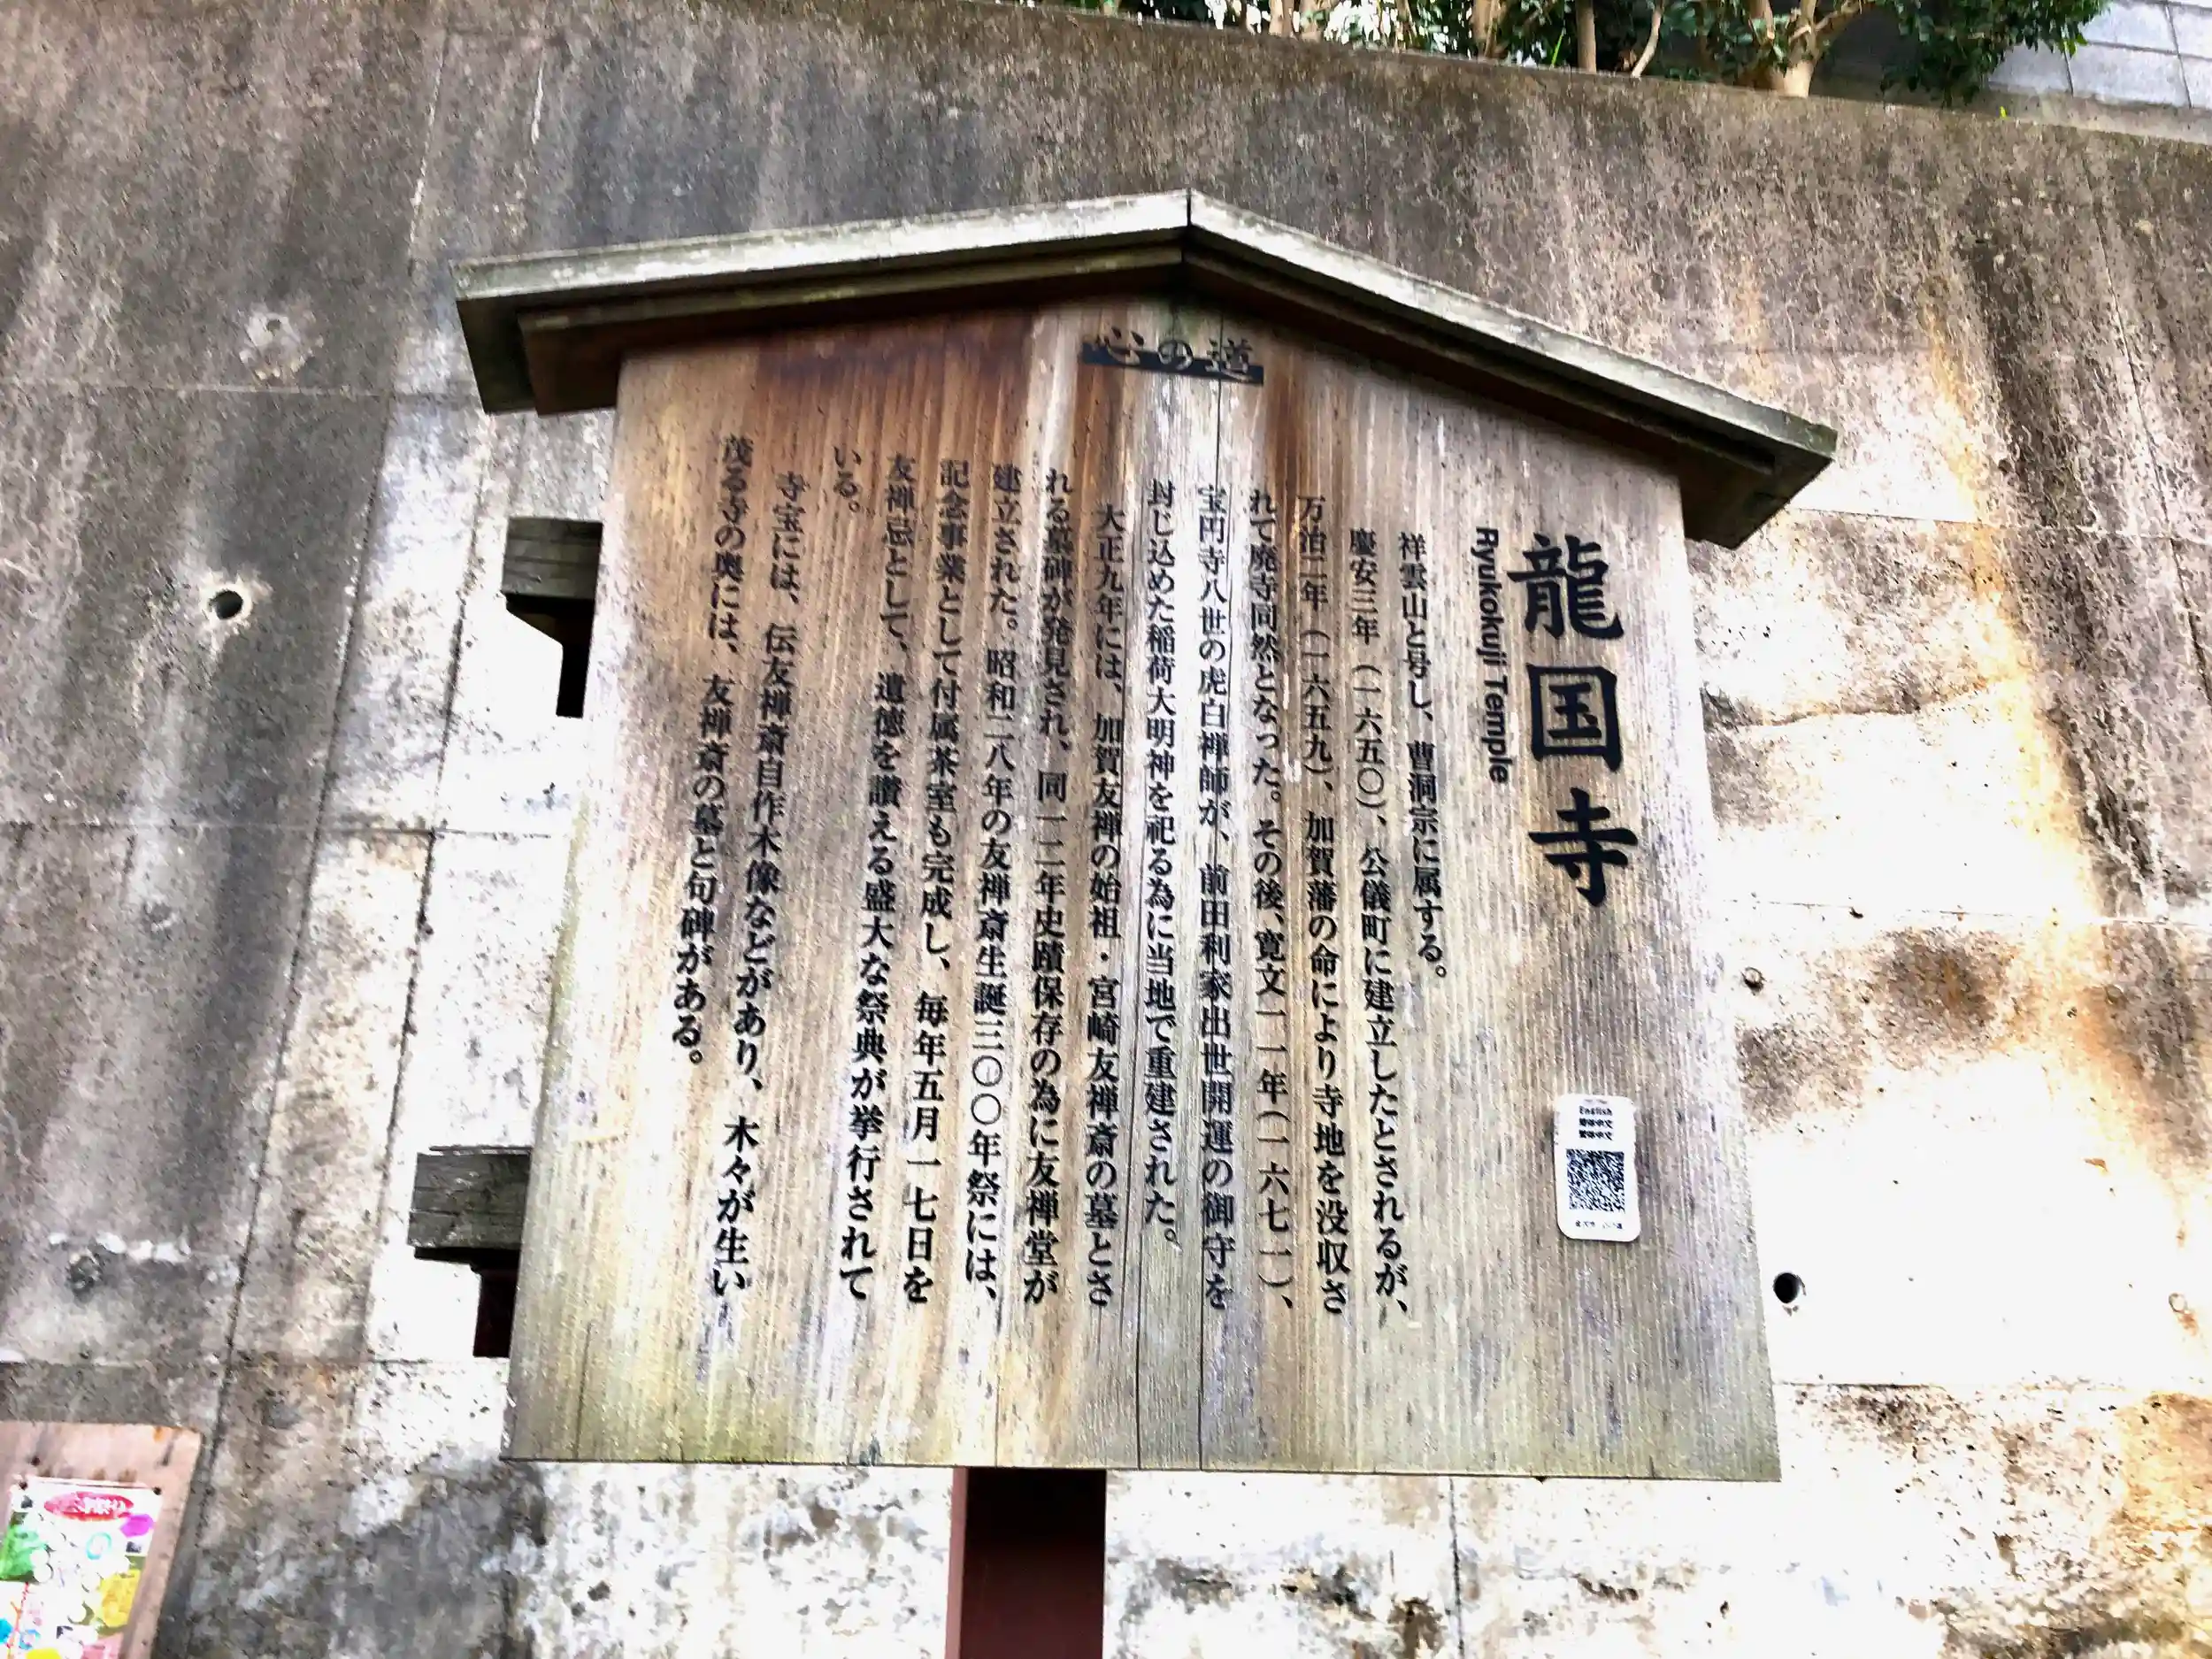 心の道
龍国寺
Ryukokuji Temple
祥雲山と号し、曹洞宗に属する。
慶安三年（一六五〇）、公儀町に建立したとされるが、
万治二年（一六五九）、加賀藩の命により寺地を没収さ
れて廃寺同然となった。その後、寛文一一年（一六七一）、
宝円寺八世の虎白禅師が、前田利家出世開運の御守を
封じ込めた稲荷大明神を祀る為に当地で重建された。
大正九年には、加賀友禅の始祖・宮崎友禅斎の墓とさ
れる墓碑が発見され、同一二年史蹟保存の為に友禅堂が
建立された。昭和二八年の友禅斎生誕三〇〇年祭には、
記念事業として付属茶室も完成し、毎年五月一七日を
友禅忌として、遺徳を讃える盛大な祭典が挙行されて
いる。
寺宝には、伝友禅斎自作木像などがあり、木々が生い
茂る寺の奥には、友禅斎の墓と句碑がある。
English